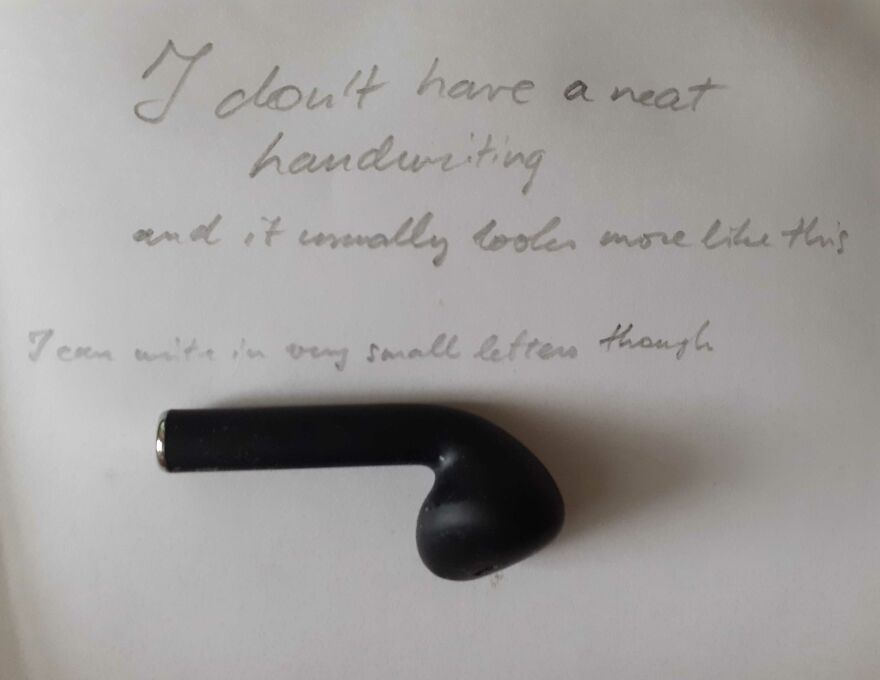 I don't have a neat
handwriting
and it usually looks more like this
I can write in very small letters though